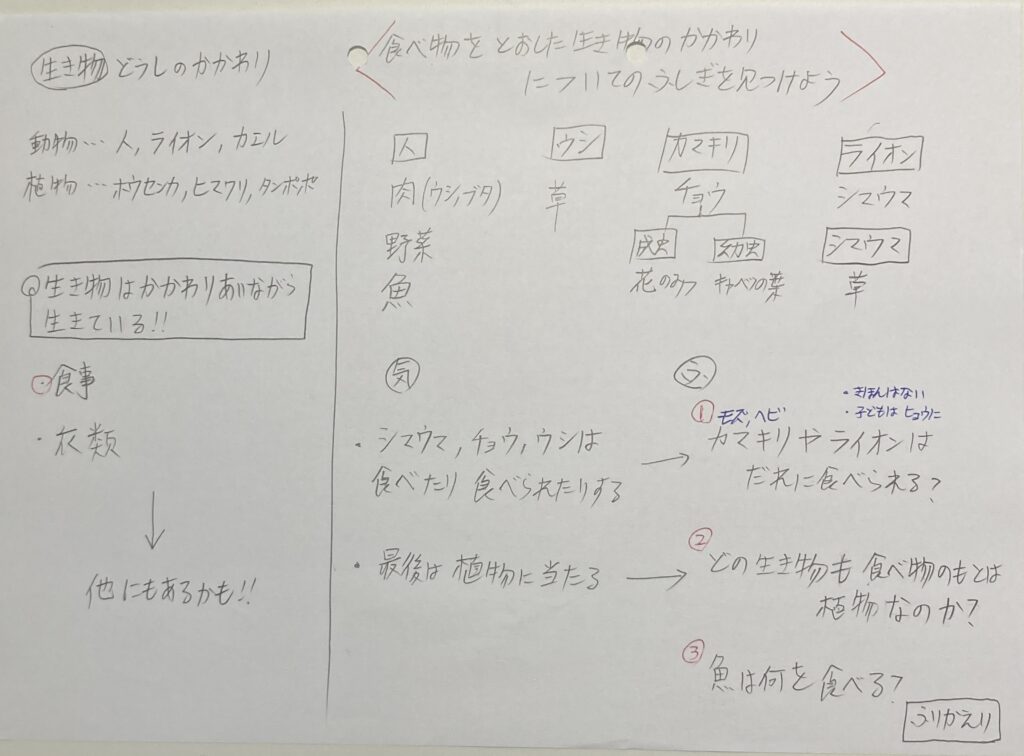 生き物どうしのかかわり
動物…人,ライオン,カエル
植物…ホウセンカ,ヒマワリ,タンポポ
生き物はかかわりあいながら
生きている!!
・食事
・衣類
↓
他にもあるかも!!
食べ物をとおした生き物のかかわり
についてのふしぎを見つけよう
人
肉(ウシ,ブタ)
野菜
魚
ウシ
草
カマキリ
チョウ
成虫 幼虫
花のみつ キャベツの葉
ライオン
シマウマ
シマウマ
草
気
・シマウマ,チョウ,ウシは
食べたり食べられたりする
・最後は植物に当たる
ふ
① モズ,ヘビ
・きほんはない
・子どもはヒョウに
→カマキリやライオンは
だれに食べられる?
②
→どの生き物も食べ物のもとは
植物なのか?
③
魚は何を食べる?
ふりかえり